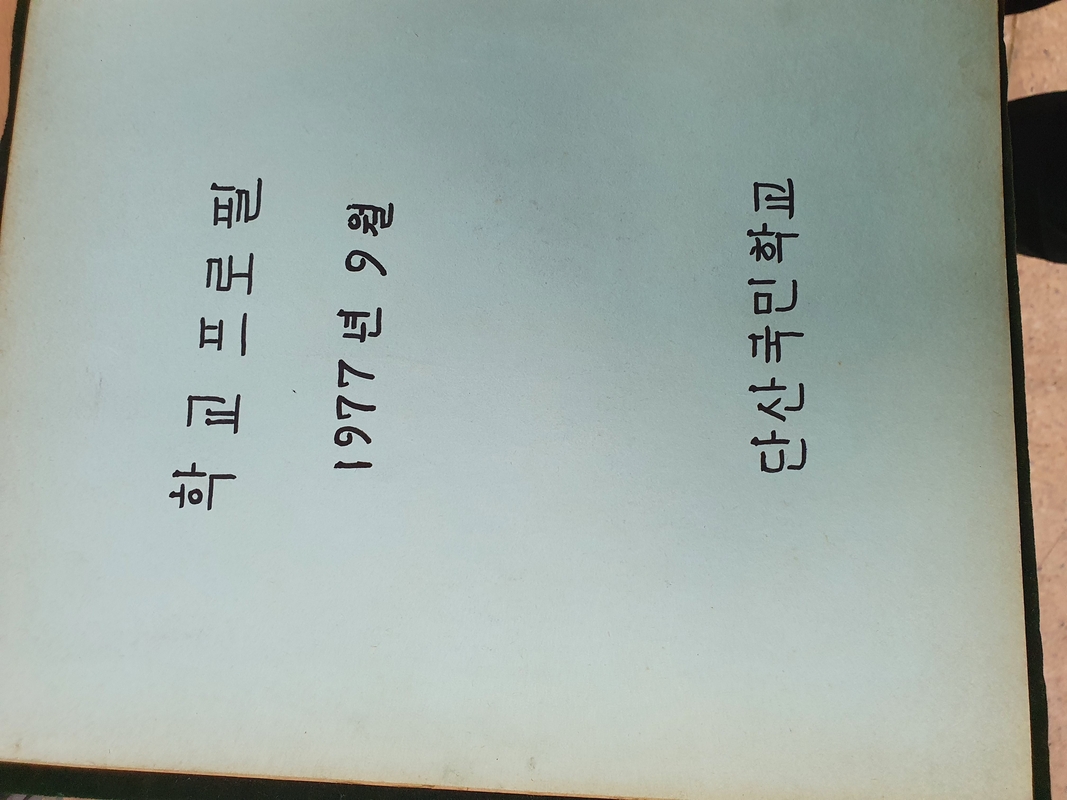 학교 프로필
1977년 9월
단산국민학교